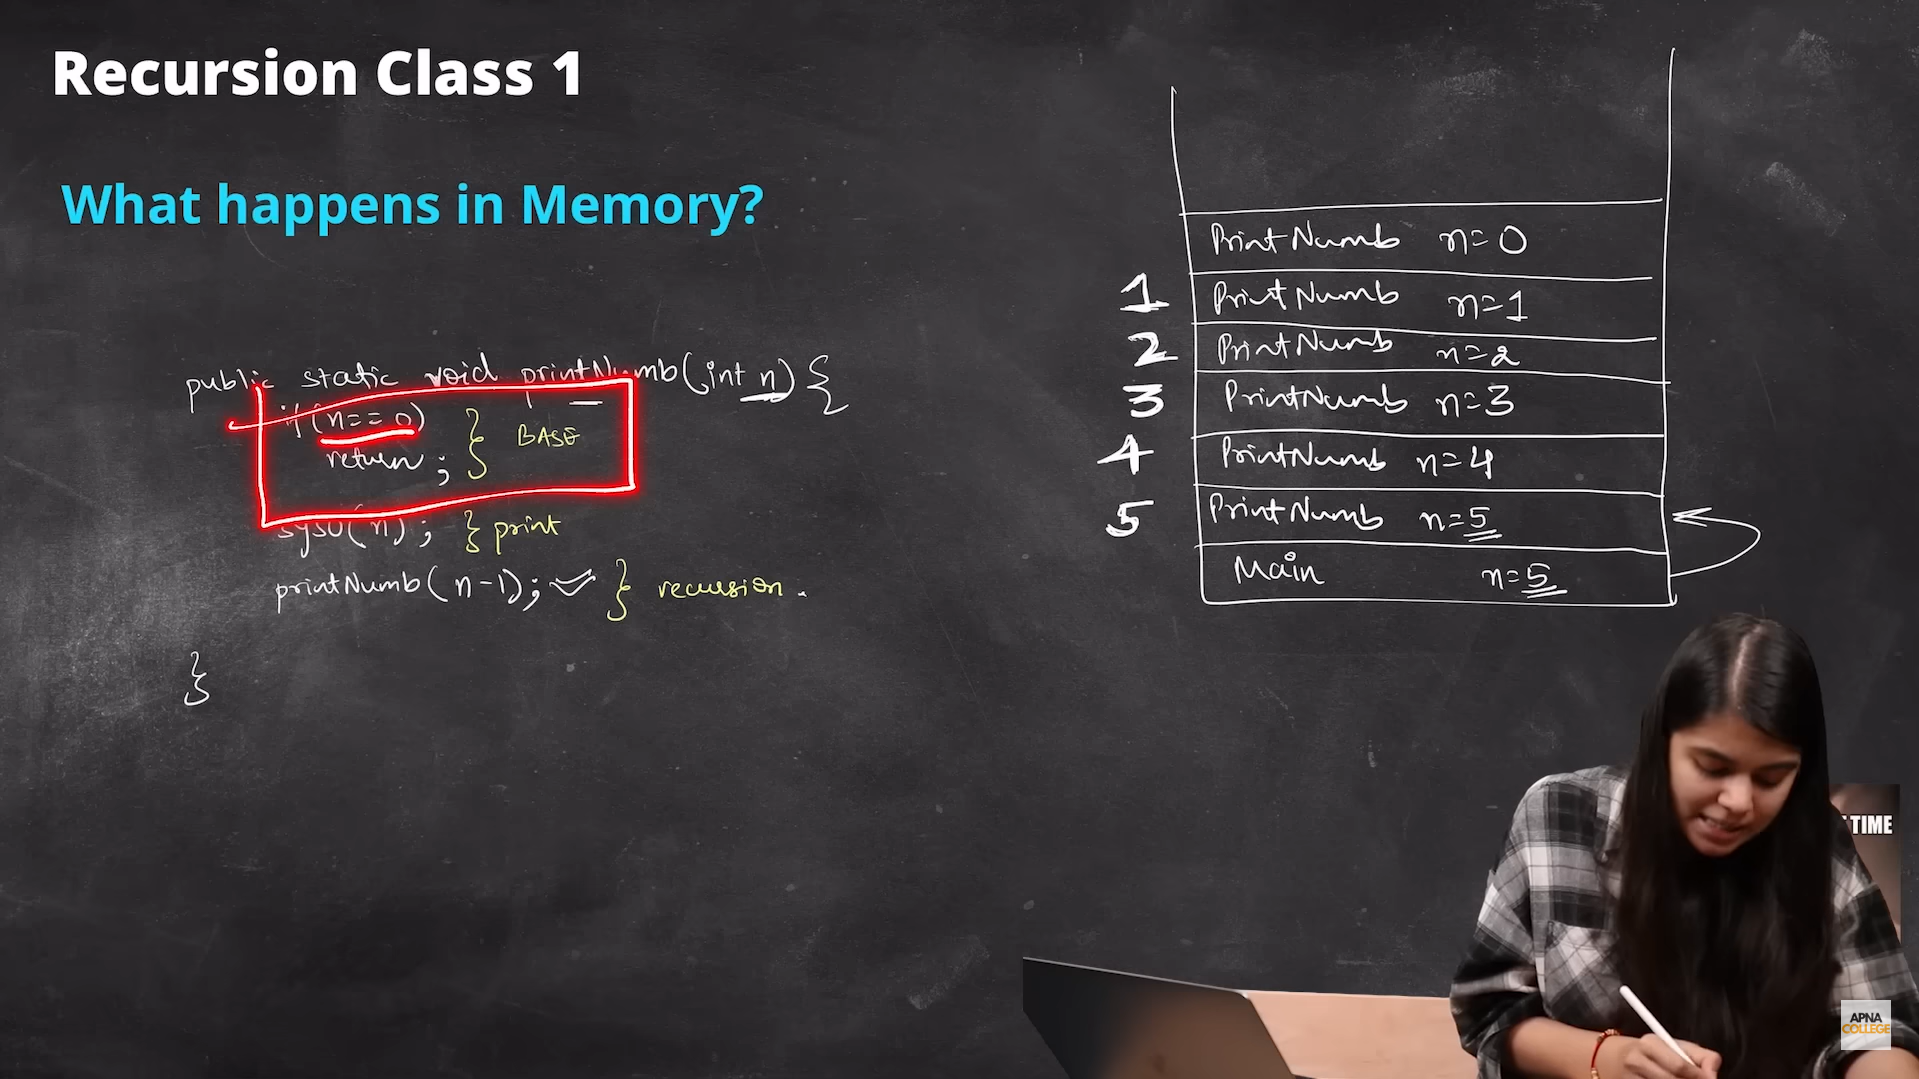 Recursion Class 1
What happens in Memory?
public static void printNumb(int n) {
if (n == 0) } BASE
return ;
syso(n) ; } print
printNumb( n-1); } recursion .
}
PrintNumb n=0
1 PrintNumb n=1
2 PrintNumb n=2
3 PrintNumb n=3
4 PrintNumb n=4
5 PrintNumb n=5
Main n=5
TIME
APNA
COLLEGE